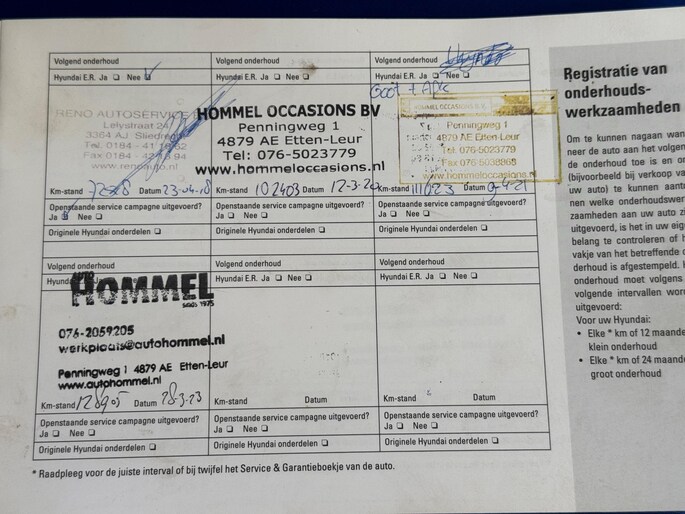 Volgend onderhoud
Hyundai E.R. Ja ❑ Nee ❑
RENO AUTOSERVICE
Lelystraat
3364 AJ Sliedrecht
Tel. 0184 - 41
Fax 0184 - 94
www.renoauto.nl
Km-stand Datum 23-04-18
Openstaande service campagne uitgevoerd?
Ja ❑ Nee ❑
Originele Hyundai onderdelen ❑
Volgend onderhoud
Hyundai E.R. Ja ❑ Nee ❑
HOMMEL OCCASIONS BV
Penningweg 1
4879 AE Etten-Leur
Tel: 076-5023779
www.hommeloccasions.nl
Km-stand 102403 Datum 12-3-20
Openstaande service campagne uitgevoerd?
Ja ❑ Nee ❑
Originele Hyundai onderdelen ❑
Volgend onderhoud
Hyundai E.R. Ja ❑ Nee ❑
Groot + APK
HOMMEL OCCASIONS B.V.
Penningweg 1
4879 AE Etten-Leur
Tel. 076-5023779
Fax 076-5038868
www.hommeloccasions.nl
Km-stand 111023 Datum 9-4-21
Openstaande service campagne uitgevoerd?
Ja ❑ Nee ❑
Originele Hyundai onderdelen ❑
Volgend onderhoud
Hyundai
AUTO
HOMMEL
sinds 1975
076-2059205
werkplaats@autohommel.nl
Penningweg 1 4879 AE Etten-Leur
www.autohommel.nl
Km-stand 128905 Datum 28-3-23
Openstaande service campagne uitgevoerd?
Ja ❑ Nee ❑
Originele Hyundai onderdelen ❑
Volgend onderhoud
Hyundai E.R. Ja ❑ Nee ❑
Km-stand Datum
Openstaande service campagne uitgevoerd?
Ja ❑ Nee ❑
Originele Hyundai onderdelen ❑
Volgend onderhoud
Hyundai E.R. Ja ❑ Nee ❑
Km-stand Datum
Openstaande service campagne uitgevoerd?
Ja ❑ Nee ❑
Originele Hyundai onderdelen ❑
* Raadpleeg voor de juiste interval of bij twijfel het Service & Garantieboekje van de auto.
Registratie van
onderhouds-
werkzaamheden
Om te kunnen nagaan wan
neer de auto aan het volgen
de onderhoud toe is en o
(bijvoorbeeld bij verkoop va
uw auto) te kunnen aanto
nen welke onderhoudswer
zaamheden aan uw auto zi
uitgevoerd, is het in uw eige
belang te controleren of h
vakje van het betreffende o
derhoud is afgestempeld. H
onderhoud moet volgens
volgende intervallen wor
uitgevoerd:
Voor uw Hyundai:
• Elke * km of 12 maande
klein onderhoud
• Elke * km of 24 maand
groot onderhoud